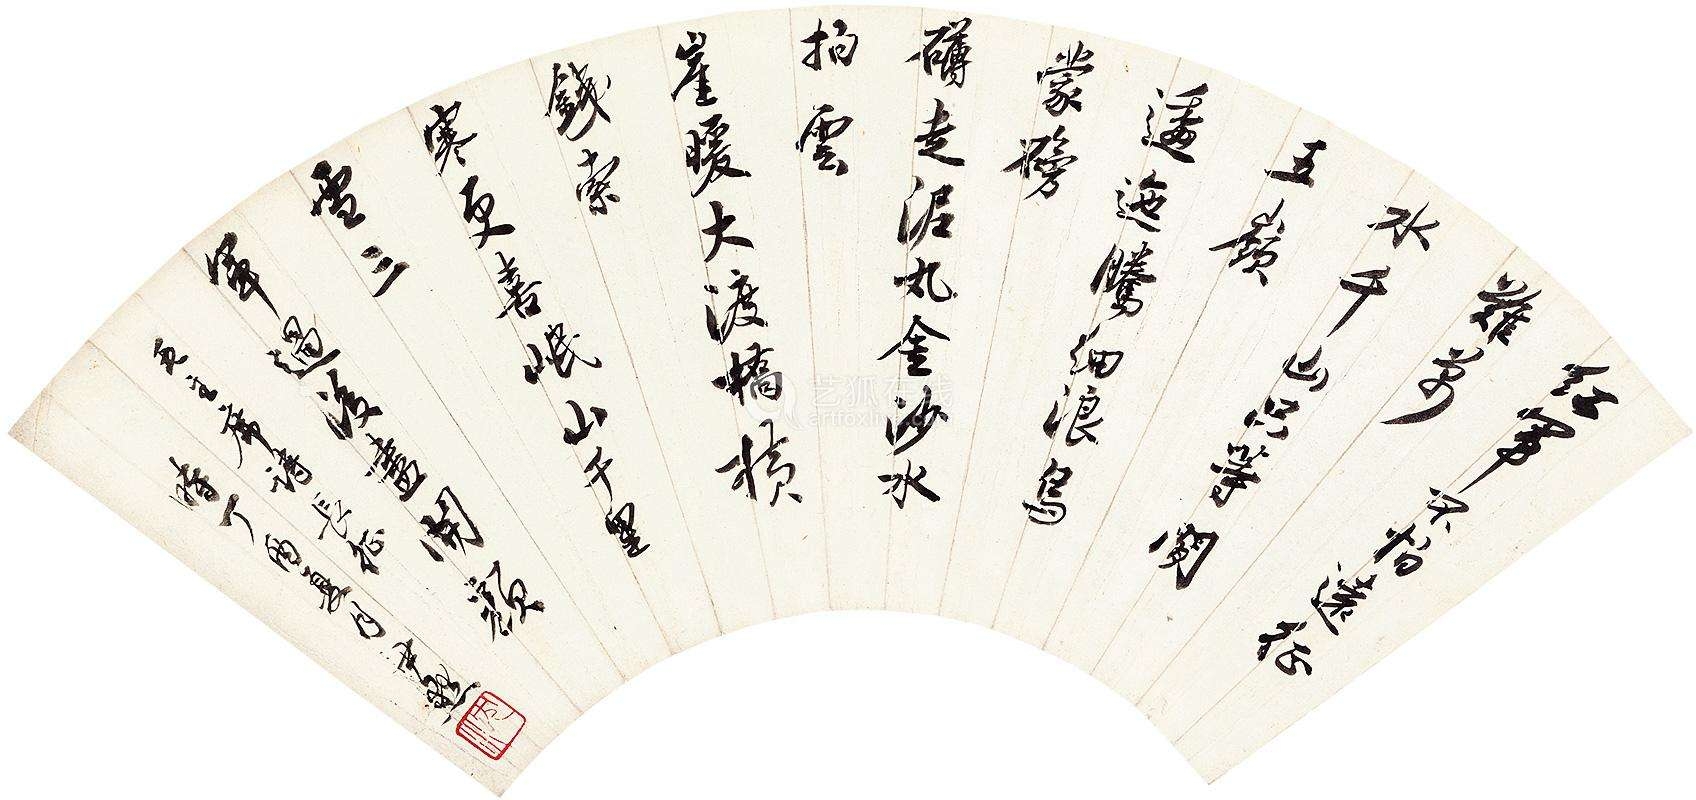 紅軍不怕遠征
難萬
水千山只等閒
五嶺
逶迤騰細浪烏
蒙磅
礴走泥丸金沙水
拍雲
崖暖大渡橋橫
鐵索
寒更喜岷山千里
雪三
軍過後盡開顏
毛主席詩長征
時丁酉夏日尹默
艺狐在线
artfoxlive.com